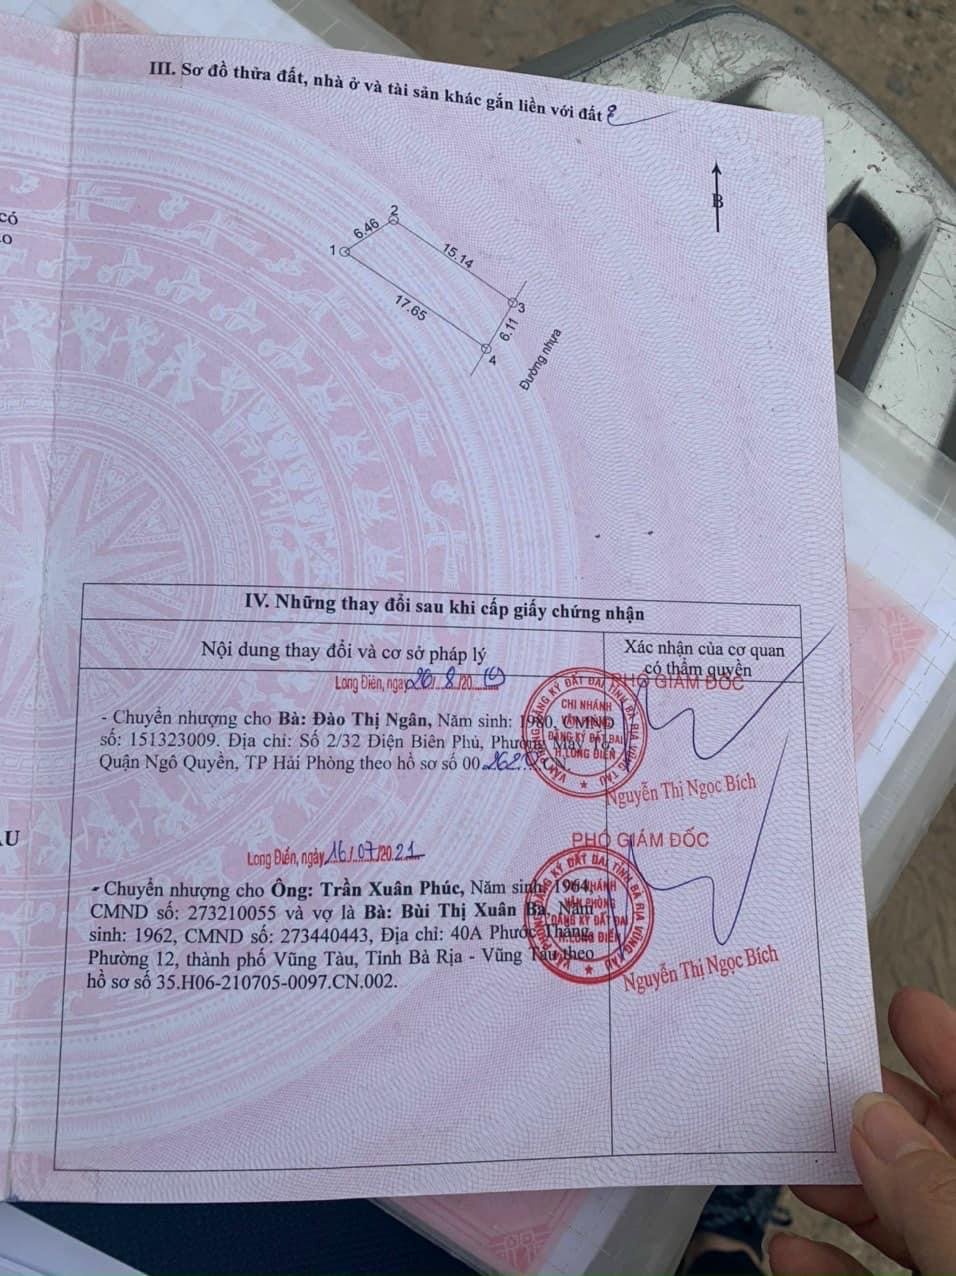 III. Sơ đồ thửa đất, nhà ở và tài sản khác gắn liền với đất
B
có
2
6.46
1
15.14
17.65
3
6.11
4
Đường nhựa
IV. Những thay đổi sau khi cấp giấy chứng nhận
Nội dung thay đổi và cơ sở pháp lý
Xác nhận của cơ quan
có thẩm quyền
Long Điền, ngày 20/.8./20
PHÓ GIÁM ĐỐC
- Chuyển nhượng cho Bà: Đào Thị Ngân, Năm sinh: 1980, CMND
số: 151323009. Địa chỉ: Số 2/32 Điện Biên Phủ, Phường Máy Tơ,
Quận Ngô Quyền, TP Hải Phòng theo hồ sơ số 00 CN.
VĂN PHÒNG ĐĂNG KÝ ĐẤT ĐAI TỈNH BÀ RỊA VŨNG TÀU
CHI NHÁNH
VĂN PHÒNG
ĐĂNG KÝ ĐẤT ĐAI
H.LONG ĐIỀN
Nguyễn Thị Ngọc Bích
AU
Long Điền, ngày 16/07/2021
PHÓ GIÁM ĐỐC
- Chuyển nhượng cho Ông: Trần Xuân Phúc, Năm sinh: 1964,
CMND số: 273210055 và vợ là Bà: Bùi Thị Xuân Ba, Năm
sinh: 1962, CMND số: 273440443, Địa chỉ: 40A Phước Thắng,
Phường 12, thành phố Vũng Tàu, Tỉnh Bà Rịa - Vũng Tàu theo
hồ sơ số 35.H06-210705-0097.CN.002.
VĂN PHÒNG ĐĂNG KÝ ĐẤT ĐAI TỈNH BÀ RỊA VŨNG TÀU
CHI NHÁNH
VĂN PHÒNG
ĐĂNG KÝ ĐẤT ĐAI
H.LONG ĐIỀN
Nguyễn Thị Ngọc Bích